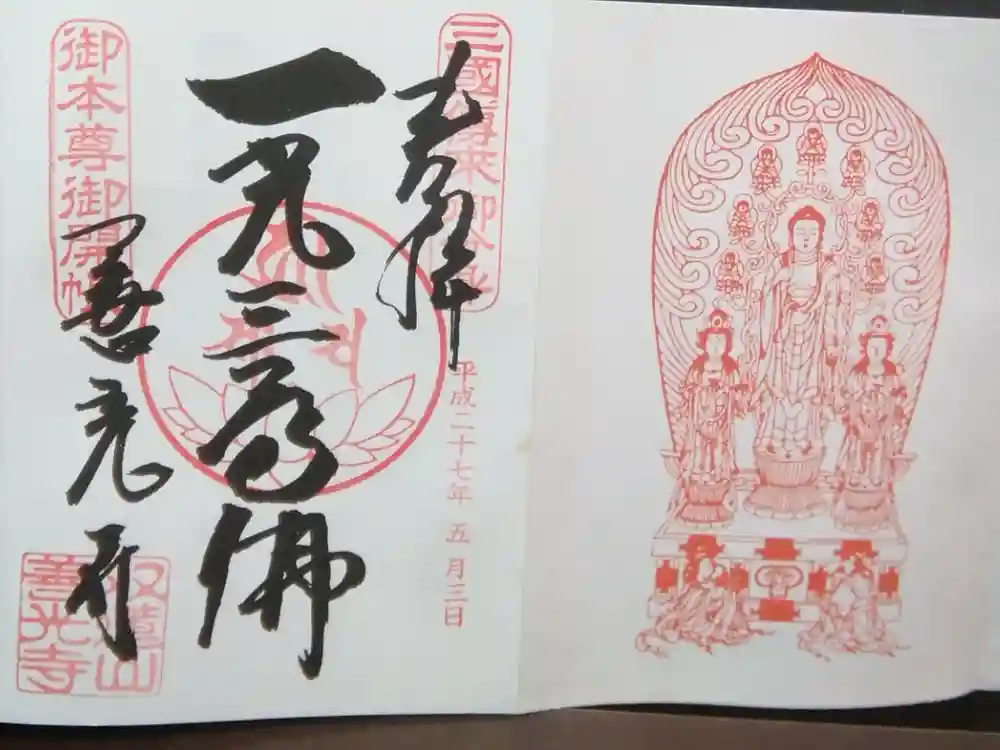 三國傳来御分身
奉拝
平成二十七年 五月三日
一光三尊佛
御本尊御開帳
善光寺
双蓮山
善光寺